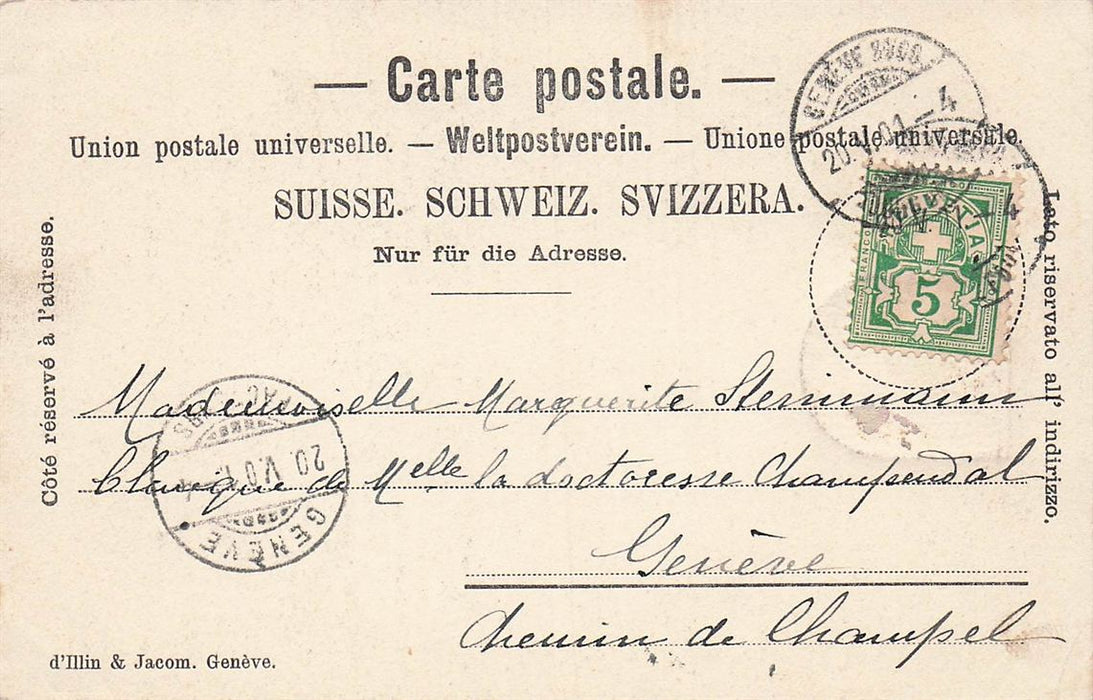 — Carte postale. —
Union postale universelle. — Weltpostverein. — Unione postale universale.
SUISSE. SCHWEIZ. SVIZZERA.
Nur für die Adresse.
Côté réservé à l'adresse.
Lato riservato all' indirizzo.
GENÈVE
20. V. 01 – 4
HELVETIA
FRANCO
5
Mademoiselle Marguerite
Clinique de Melle la doctoresse Champendal
Genève
Chemin de Champel
GENÈVE
20. V. 01
d'Illin & Jacom. Genève.